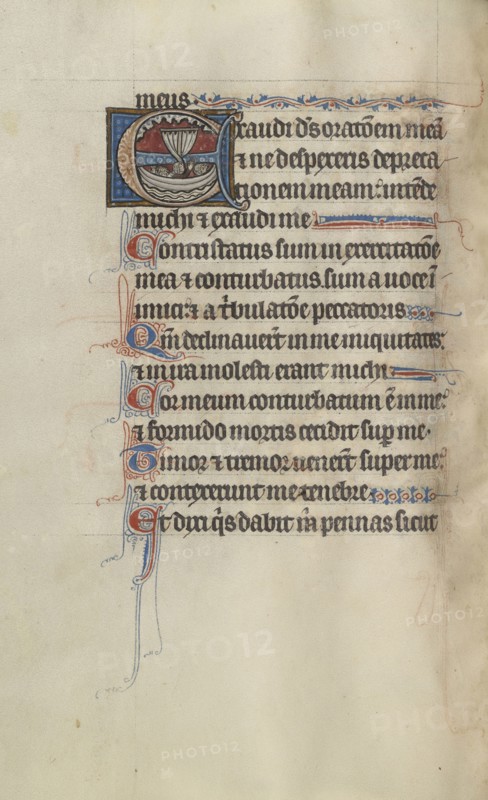 meus
Exaudi ds oratoem mea
⁊ ne despexeris depreca
tionem meam: intede
michi ⁊ exaudi me
Contristatus sum in exercitatoe
mea ⁊ conturbatus sum a uoce i
imici: ⁊ a tbulatoe peccatoris
Qm declinauert in me iniquitates:
⁊ in ira molesti erant michi
Cor meum conturbatum e in me:
⁊ formido mortis cecidit sup me.
Timor ⁊ tremor uenert super me:
⁊ contexerunt me tenebre
Et dixi qs dabit m pennas sicut